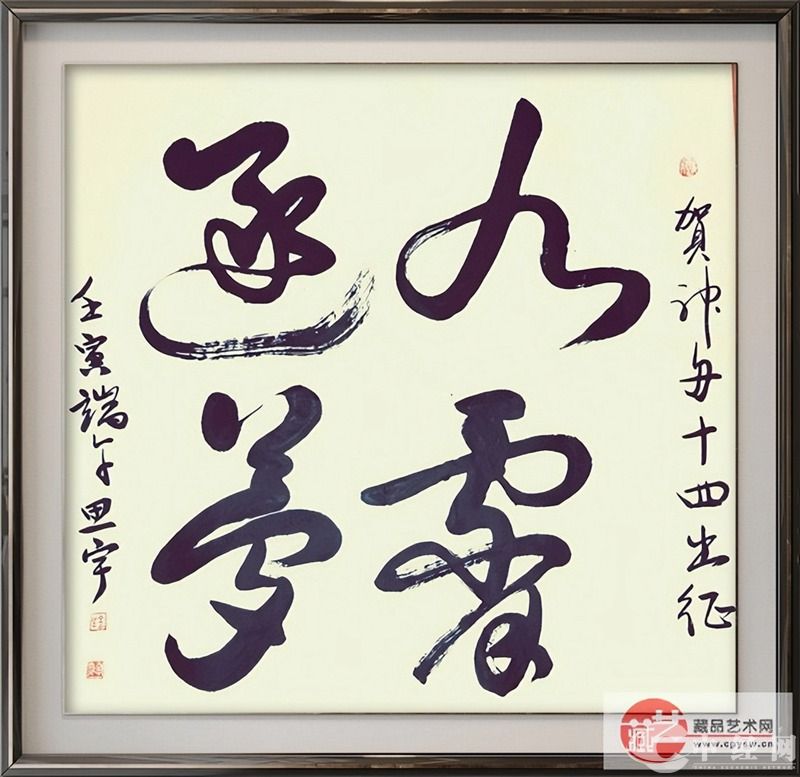 賀神舟十四出征
九霄
逐夢
壬寅端午思宇
藏品艺术网
www.cpysw.cn